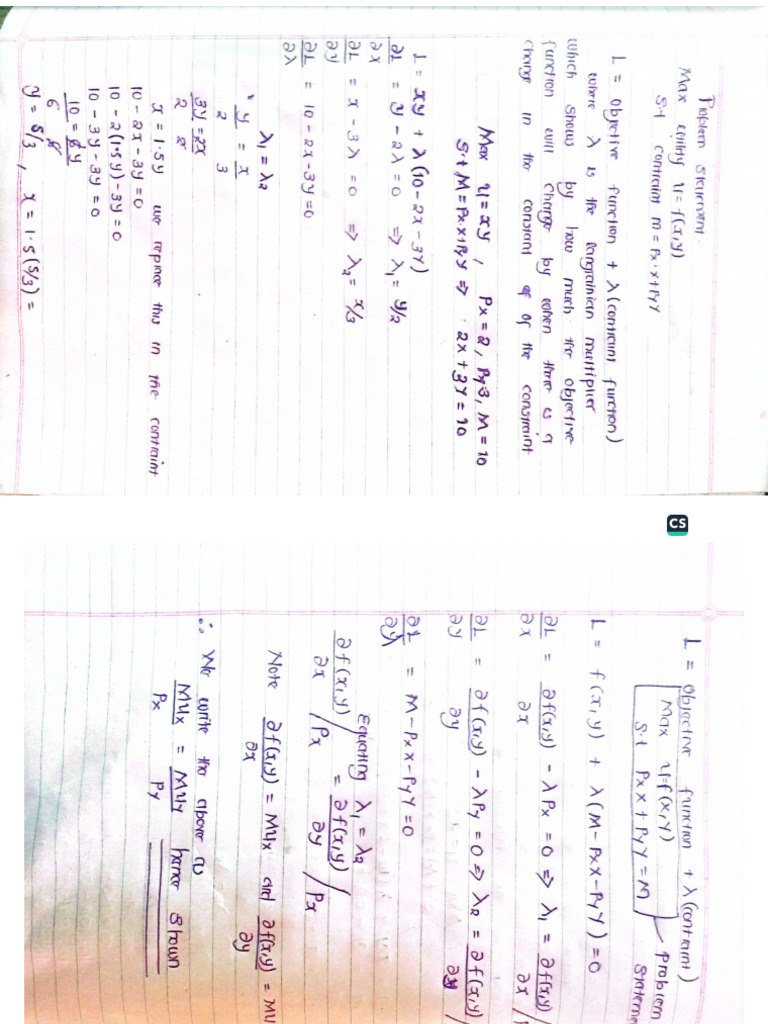 Problem statement.
Max utility U = f(x,y)
S.t contraint M = Px·x+PyY
L = Objective function + λ(contraint function)
where λ is the langramian multiplier
which shows by how much the objective
function will change by when there is a
change in the constant of the constraint
Max U = xy, Px = 2, Py=3, M = 10
S.t, M = Px x + PyY ⇒ 2x + 3Y = 10
L = xy + λ(10 - 2x - 3Y)
∂L/∂x = y - 2λ = 0 ⇒ λ₁ = y/2
∂L/∂y = x - 3λ = 0 ⇒ λ₂ = x/3
∂L/∂λ = 10 - 2x - 3y = 0
λ₁ = λ₂
y/2 = x/3
3y/2 = 2x/2
x = 1.5y we replace this in the contraint
10 - 2x - 3y = 0
10 - 2(1.5y) - 3y = 0
10 - 3y - 3y = 0
10/6 = 6y/6
y = 5/3, x = 1.5(5/3) =
CS
L = Objective function + λ(contraint)
Max U=f(x,Y)
S.t Px X + PyY = M
Problem
L = f(x,y) + λ(M - PxX - PyY) = 0
∂L/∂x = ∂f(x,y)/∂x - λPx = 0 ⇒ λ₁ = ∂f(x,y)/∂x /
∂L/∂y = ∂f(x,y)/∂y - λPy = 0 ⇒ λ₂ = ∂f(x,y)/∂y /
∂L/∂λ = M - PxX - PyY = 0
Equating λ₁ = λ₂
∂f(x,y)/∂x / Px = ∂f(x,y)/∂y / Px
Note ∂f(x,y)/∂x = MUx and ∂f(x,y)/∂y = MU
∴ We write the above as
MUx/Px = MUy/Py hence shown